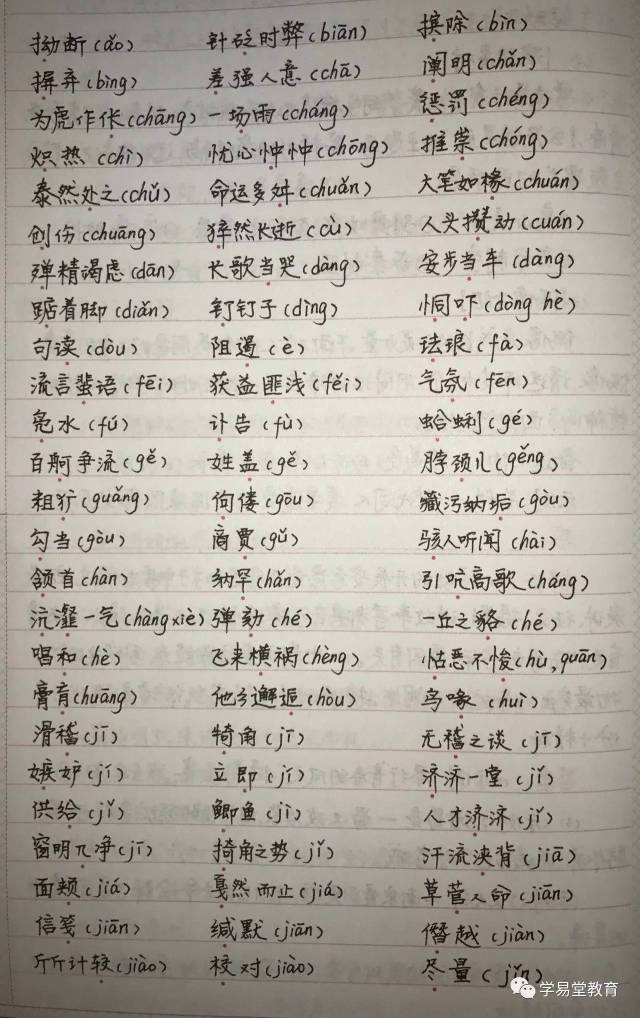 拗断(ǎo) 针砭时弊(biān) 摈除(bìn)
摒弃(bìng) 差强人意(chā) 阐明(chǎn)
为虎作伥(chāng) 一场雨(cháng) 惩罚(chéng)
炽热(chì) 忧心忡忡(chōng) 推崇(chóng)
泰然处之(chǔ) 命运多舛(chuǎn) 大笔如椽(chuán)
创伤(chuāng) 猝然长逝(cù) 人头攒动(cuán)
殚精竭虑(dān) 长歌当哭(dàng) 安步当车(dàng)
踮着脚(diǎn) 钉钉子(dìng) 恫吓(dòng hè)
句读(dòu) 阻遏(è) 珐琅(fà)
流言蜚语(fēi) 获益匪浅(fěi) 气氛(fēn)
凫水(fú) 讣告(fù) 蛤蜊(gé)
百舸争流(gě) 姓盖(gě) 脖颈儿(gěng)
粗犷(guǎng) 佝偻(gōu) 藏污纳垢(gòu)
勾当(gòu) 商贾(gǔ) 骇人听闻(hài)
颔首(hàn) 纳罕(hǎn) 引吭高歌(háng)
沆瀣一气(hàng xiè) 弹劾(hé) 一丘之貉(hé)
唱和(hè) 飞来横祸(hèng) 怙恶不悛(hù,quān)
膏肓(huāng) 他乡邂逅(hòu) 鸟喙(huì)
滑稽(jī) 犄角(jī) 无稽之谈(jī)
嫉妒(jí) 立即(jí) 济济一堂(jǐ)
供给(jǐ) 鲫鱼(jì) 人才济济(jǐ)
窗明几净(jī) 掎角之势(jǐ) 汗流浃背(jiā)
面颊(jiá) 戛然而止(jiá) 草菅人命(jiān)
信笺(jiān) 缄默(jiān) 僭越(jiàn)
斤斤计较(jiào) 校对(jiào) 尽量(jǐn)
学易堂教育